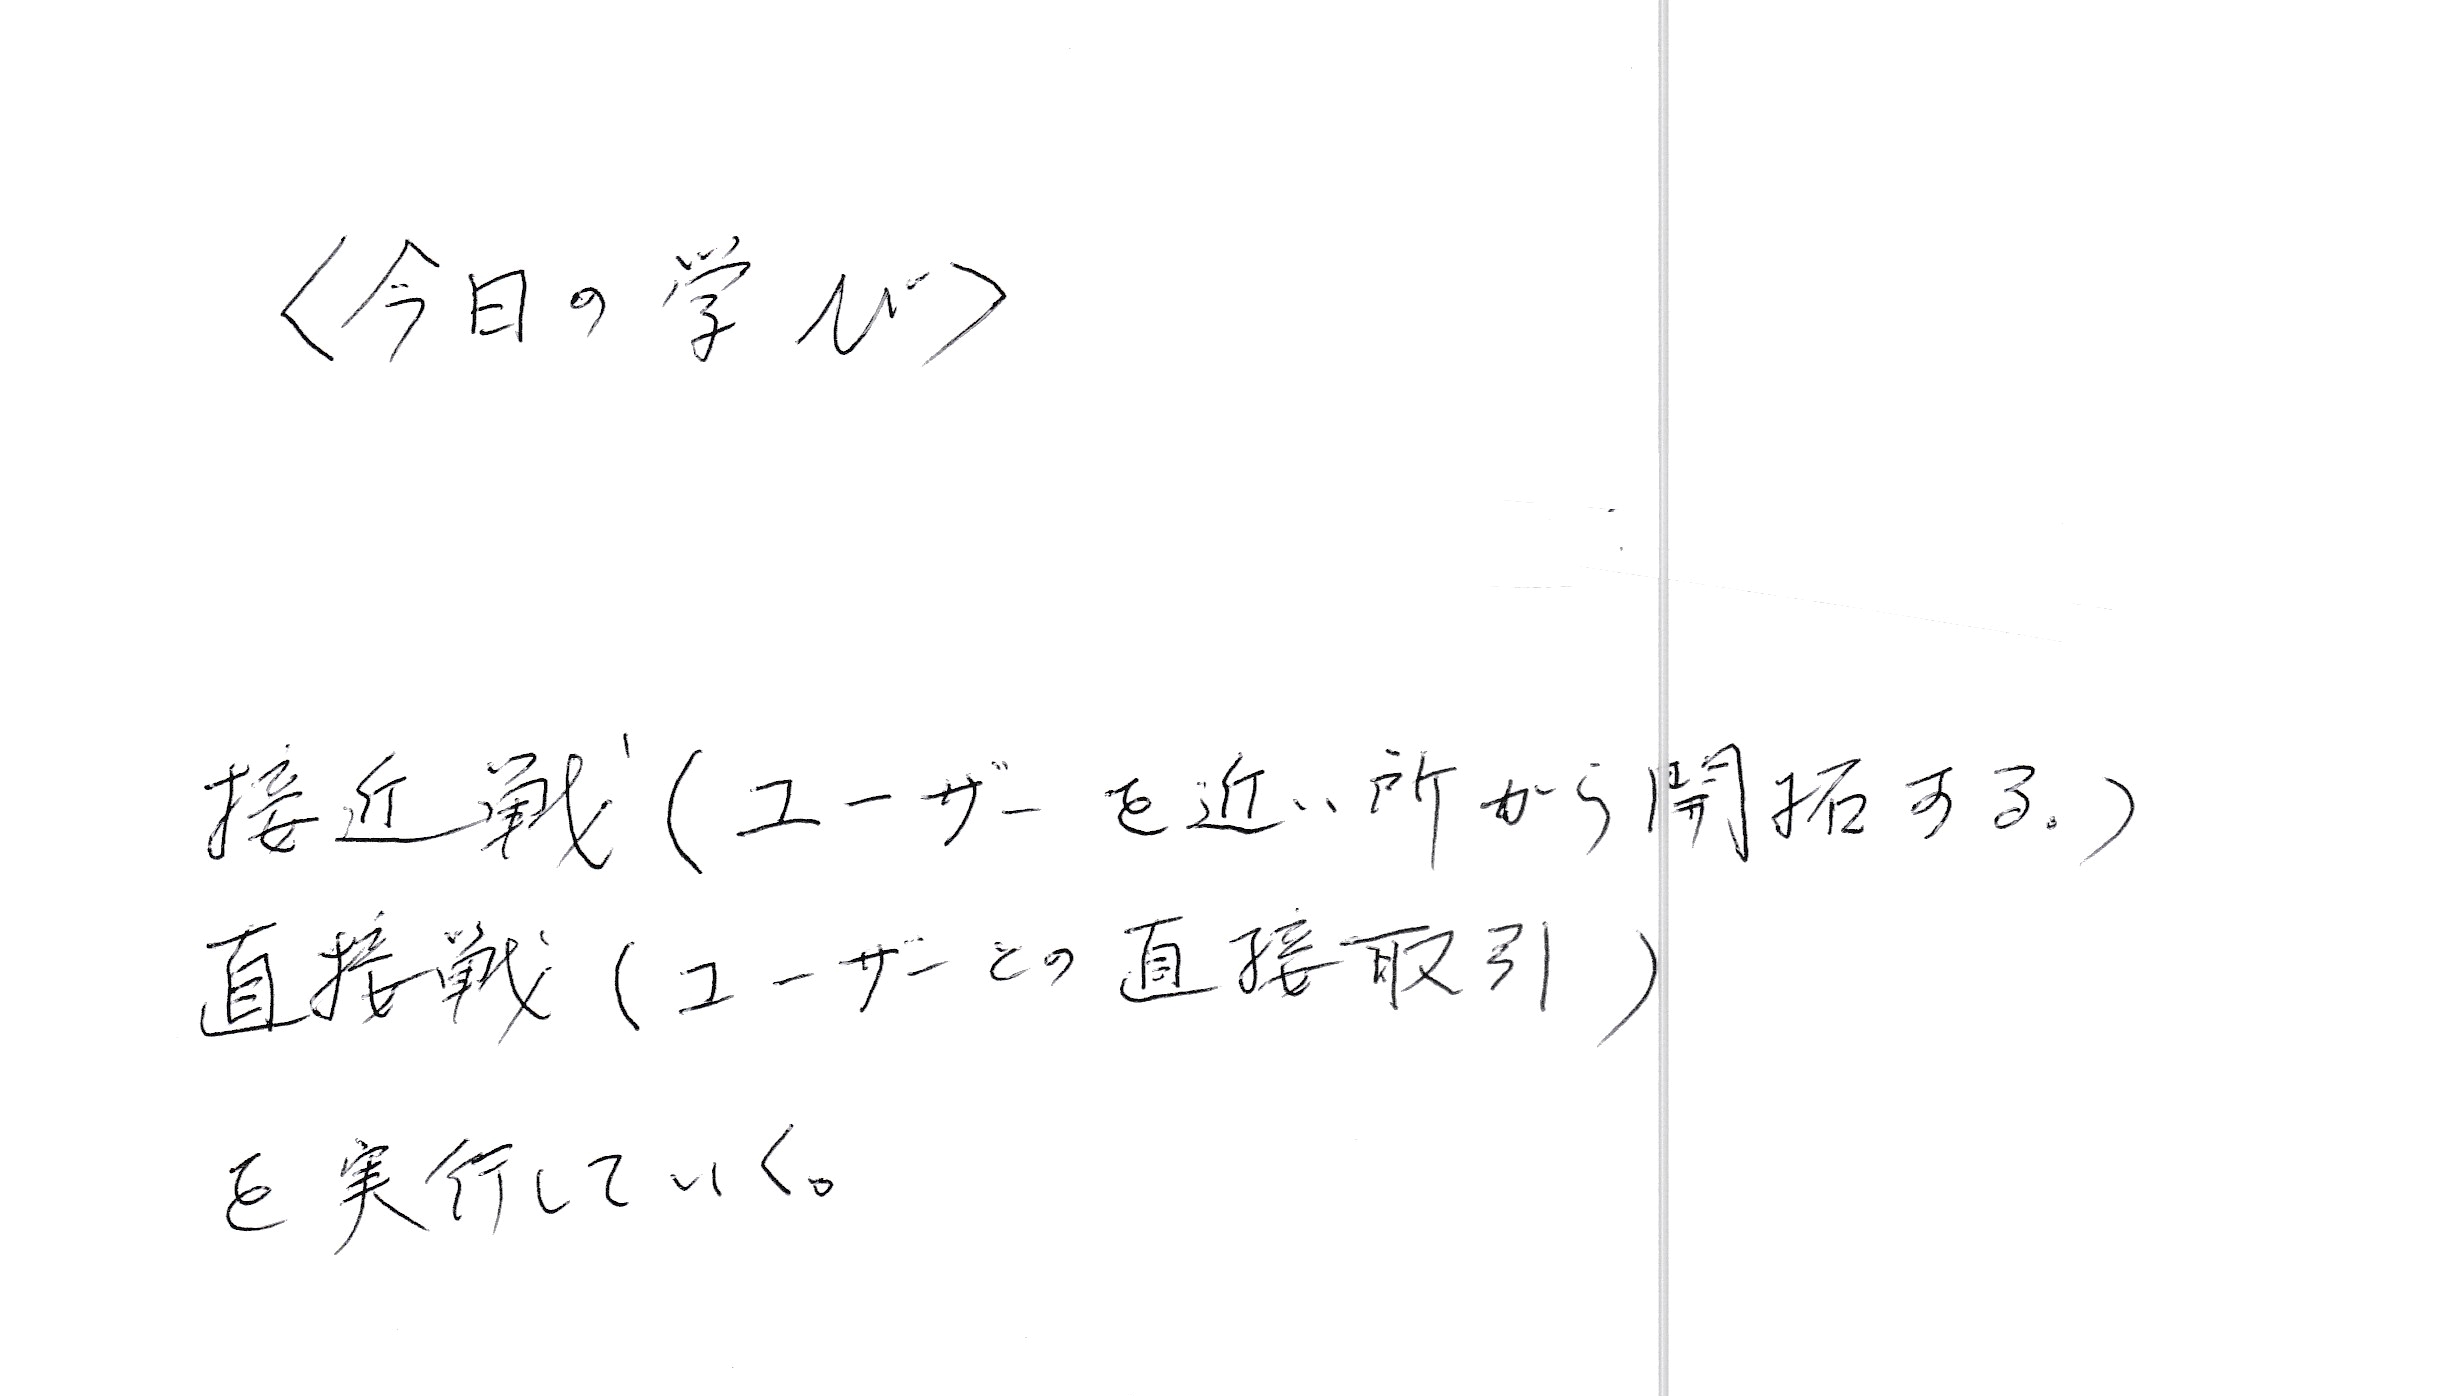 〈今日の学び〉
接近戦(ユーザーを近い所から開拓する。)
直接戦(ユーザーとの直接取引)
を実行していく。